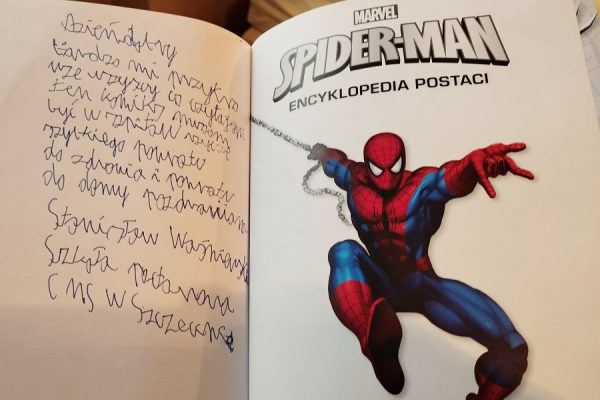 Dzieńdobry
bardzo mi przykro
że wszyscy co czytają
ten komiks muszą
być w szpitalu życzę
szybkiego powrotu
do zdrowia i powrotu
do domu pozdrawiam
Stanisław
Szkoła
CMS w Szczecinie
MARVEL
SPIDER-MAN
ENCYKLOPEDIA POSTACI